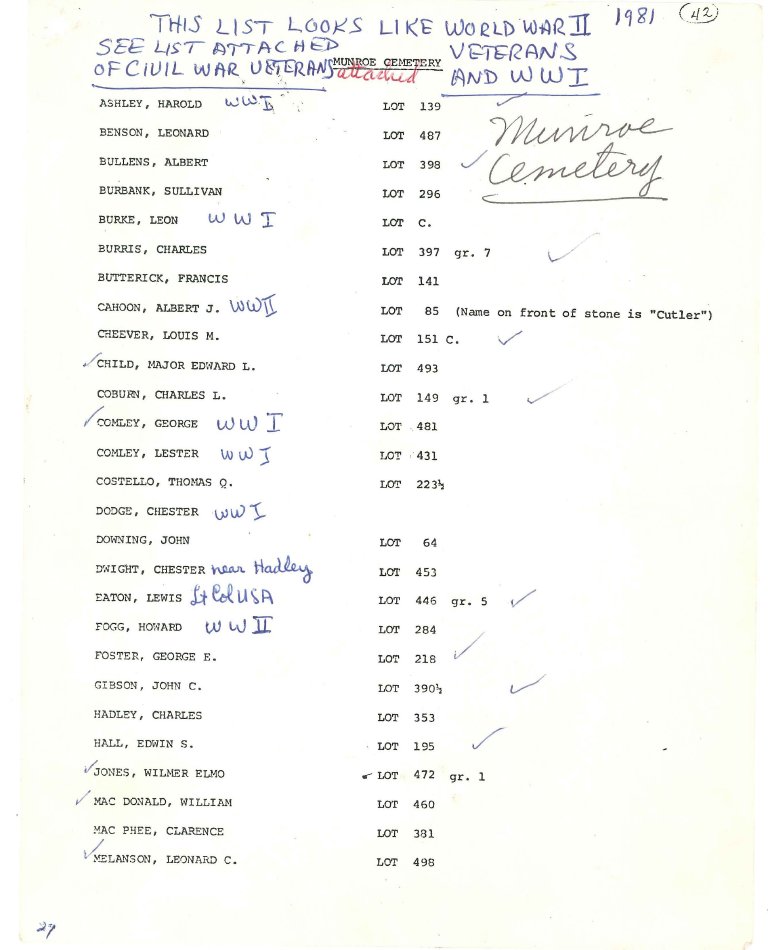 THIS LIST LOOKS LIKE WORLD WAR II 1981 42
SEE LIST ATTACHED VETERANS
OF CIVIL WAR VETERANS MUNROE CEMETERY AND WWI
attached
ASHLEY, HAROLD WWI LOT 139
Munroe
Cemetery
BENSON, LEONARD LOT 487
BULLENS, ALBERT LOT 398 ✓
BURBANK, SULLIVAN LOT 296
BURKE, LEON WWI LOT C.
BURRIS, CHARLES LOT 397 gr. 7 ✓
BUTTERICK, FRANCIS LOT 141
CAHOON, ALBERT J. WWII LOT 85 (Name on front of stone is "Cutler")
CHEEVER, LOUIS M. LOT 151 C. ✓
✓CHILD, MAJOR EDWARD L. LOT 493
COBURN, CHARLES L. LOT 149 gr. 1 ✓
✓COMLEY, GEORGE WWI LOT 481
COMLEY, LESTER WWI LOT 431
COSTELLO, THOMAS Q. LOT 223½
DODGE, CHESTER WWI
DOWNING, JOHN LOT 64
DWIGHT, CHESTER near Hadley LOT 453
EATON, LEWIS Lt Col USA LOT 446 gr. 5 ✓
FOGG, HOWARD WWII LOT 284
FOSTER, GEORGE E. LOT 218 ✓
GIBSON, JOHN C. LOT 390½ ✓
HADLEY, CHARLES LOT 353
HALL, EDWIN S. LOT 195 ✓
✓JONES, WILMER ELMO LOT 472 gr. 1
✓MAC DONALD, WILLIAM LOT 460
MAC PHEE, CLARENCE LOT 381
✓MELANSON, LEONARD C. LOT 498
29